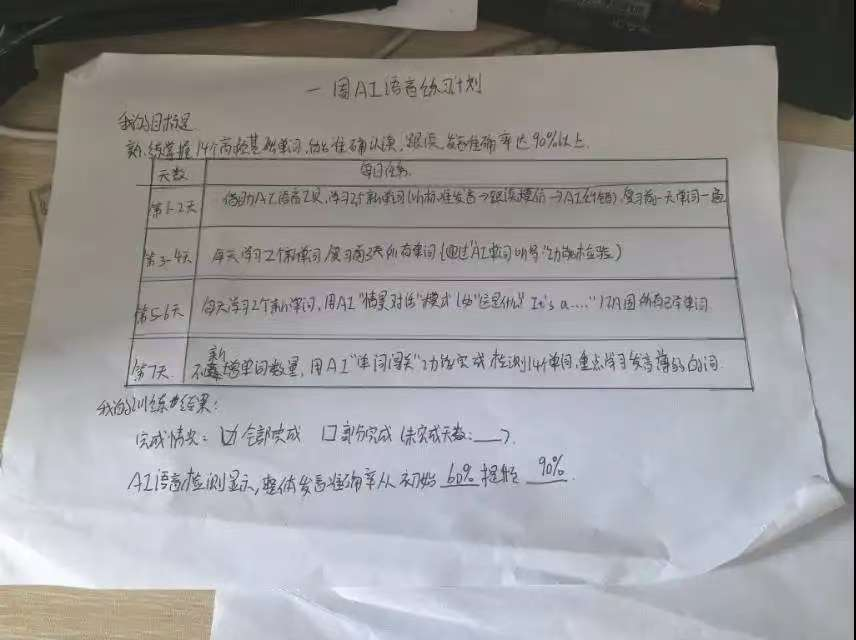 一周AI语言练习计划
我的目标是
熟练掌握14个高频基础单词,能准确认读、跟读,发音准确率达90%以上.
天数 每日任务
第1-2天 借助AI语言工具,学习5个新单词(听标准发音→跟读模仿→AI纠错),复习前一天单词一遍
第3-4天 每天学习2个新单词,复习前3天所有单词(通过"AI单词听写"功能检验)
第5-6天 每天学习2个新单词,用AI"情景对话"模式(如"这是什么? It's a....")巩固所有已学单词
第7天 不新增单词数量,用AI"单词闯关"功能完成检测14个单词,重点学习发音薄弱的词.
我的训练结果:
完成情况: ☑全部完成 □部分完成(未完成天数:___).
AI语音检测显示,整体发音准确率从初始 60% 提升 90%.